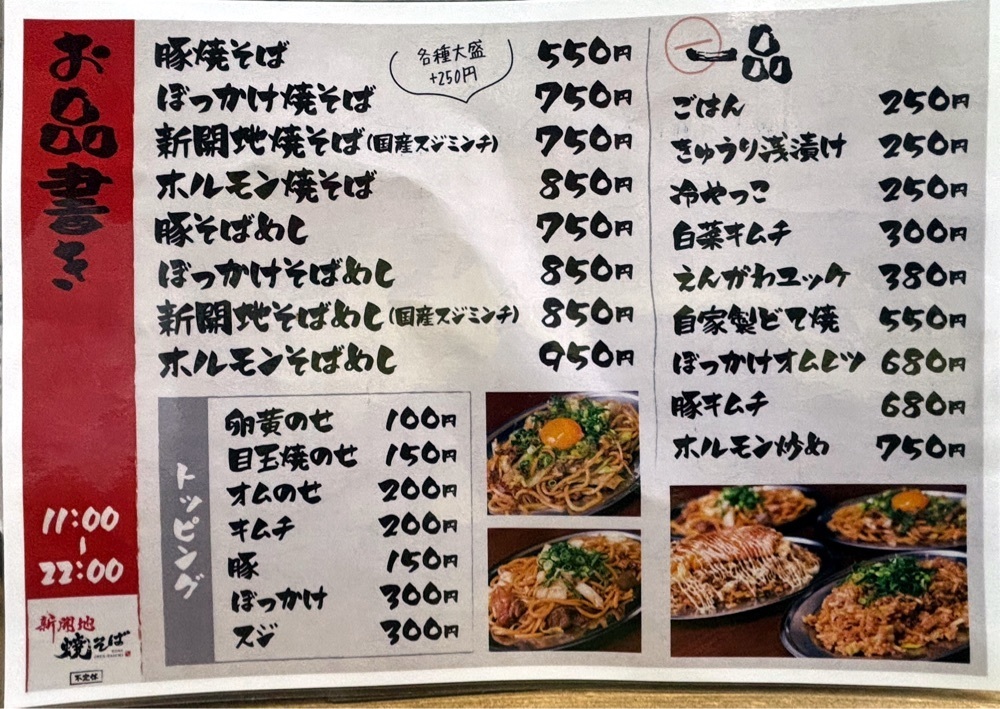 お品書き
11:00
-
22:00
新開地
焼そば
不定休
豚焼そば 550円
各種大盛
+250円
ぼっかけ焼そば 750円
新開地焼そば(国産スジミンチ) 750円
ホルモン焼そば 850円
豚そばめし 750円
ぼっかけそばめし 850円
新開地そばめし(国産スジミンチ) 850円
ホルモンそばめし 950円
トッピング
卵黄のせ 100円
目玉焼のせ 150円
オムのせ 200円
キムチ 200円
豚 150円
ぼっかけ 300円
スジ 300円
一品
ごはん 250円
きゅうり浅漬け 250円
冷やっこ 250円
白菜キムチ 300円
えんがわユッケ 380円
自家製どて焼 550円
ぼっかけオムレツ 680円
豚キムチ 680円
ホルモン炒め 750円